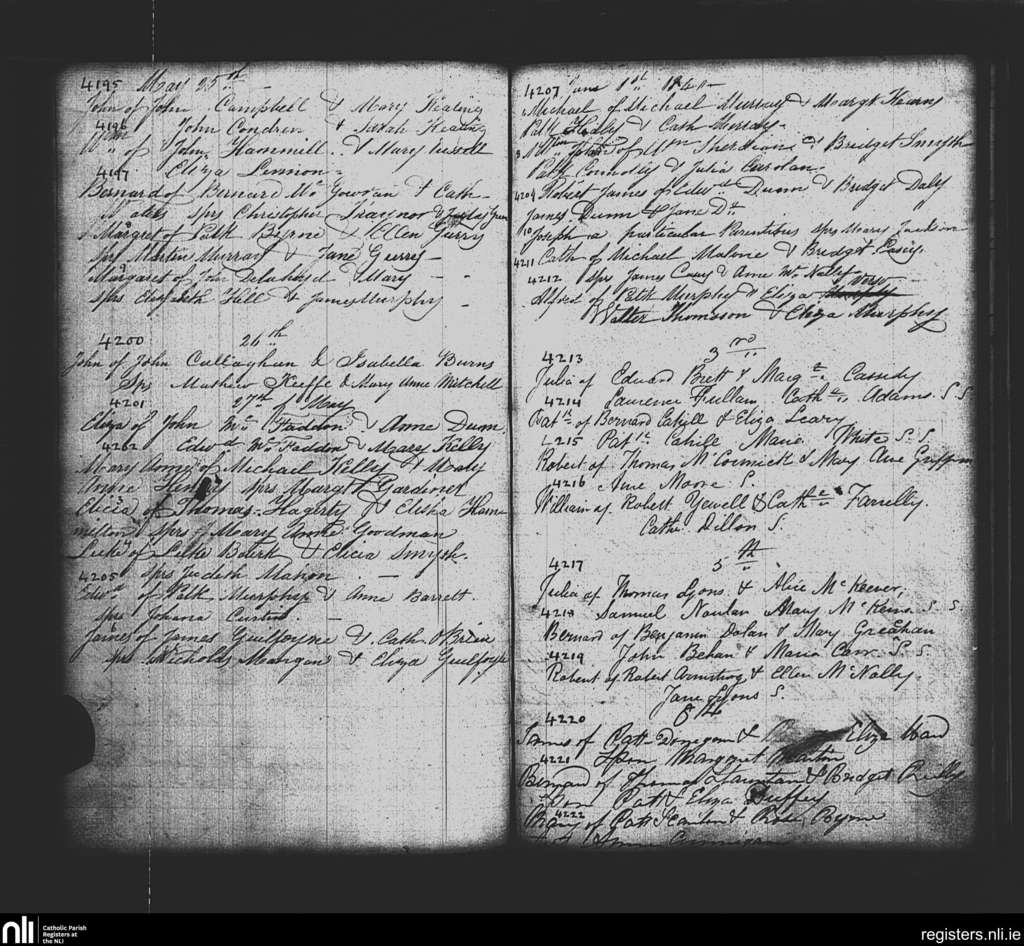 4195 May 25th
John of John Campbell & Mary Keating
4196 John Condren & Sarah Keating
of John Hammill & Mary
4197 Eliza Lennon
Bernard of Bernard Mc Gowran & Cath
sprs Christopher Traynor &
Margret of Patk Birne & Ellen Gerry
sprs Martin Murray & Jane Guerry
Margaret of John Delahoyd & Mary
sprs Elizabeth Hill & James Murphy
4200 26th
John of John Callaghan & Isabella Burns
Sprs Mathew Keeffe & Mary Anne Mitchell
4201 27th of May
Eliza of John Mc Faddon & Anne Dunn
4202 Edwd Mc Faddon & Mary Kelly
Mary Anne of Michael Kelly & Mary
Anne sprs Margt Gardiner
Elicia of Thomas Hagerty & Elisha Hame
milton Sprs Mary Anne Goodman
Luke of Luke Bourk & Elicia Smyth
4205 sprs Judith Mahon
of Patk Murphy & Anne Barrett
sprs Johana Curtin
James of James Guilfoyne & Cath O'Brien
sprs Nicholas Mangan & Eliza Guilfoyle
4207 June 1st 1840
Michael of Michael Murray & Margt Kearns
Patk Healy & Cath Murray
of Wm Sheridan & Bridget Smyth
Patk Connolly & Julia Carolan
4209 Robert James of Edwd Dunn & Bridget Daly
James Dunn & Jane Do
10 Joseph a particular Parentibus sprs Mary
4211 Cath of Michael Malone & Bridget Casey
4212 sprs James Casey & Anne Mc Nally
Alfred of Patk Murphy & Eliza
Walter Thomson & Eliza Murphy
4213 3rd
Julia of Edward Brett & Margte Cassidy
4214 Laurence Fullam Cathe Adams S.S
Patk of Bernard Cahill & Eliza Leary
4215 Patk Cahill Maria White S.S
Robert of Thomas McCormick & Mary Ane Griffin
4216 Anne Moore S.
William of Robert Yewell & Cathe Farrelly
Cathe Dillon S.
4217 5th
Julia of Thomas Lyons & Alice McKeever,
4218 Samuel Nowlan Mary McKenna S S
Bernard of Benjamin Dolan & Mary Greahan
4219 John Behan & Maria Carr S.S
Robert of Robert Armstrong & Ellen McNally
Jane Lyons S.
4220 8th
James of Patt Donegan & Eliza Ward
4221 Spon Margaret Martin
Bernard of Thomas & Bridget Reilly
Spon Patt & Eliza Duffey
4222
Mary of Patt Scanlan & Rose Byrne
nli Catholic Parish
Registers at
the NLI
registers.nli.ie